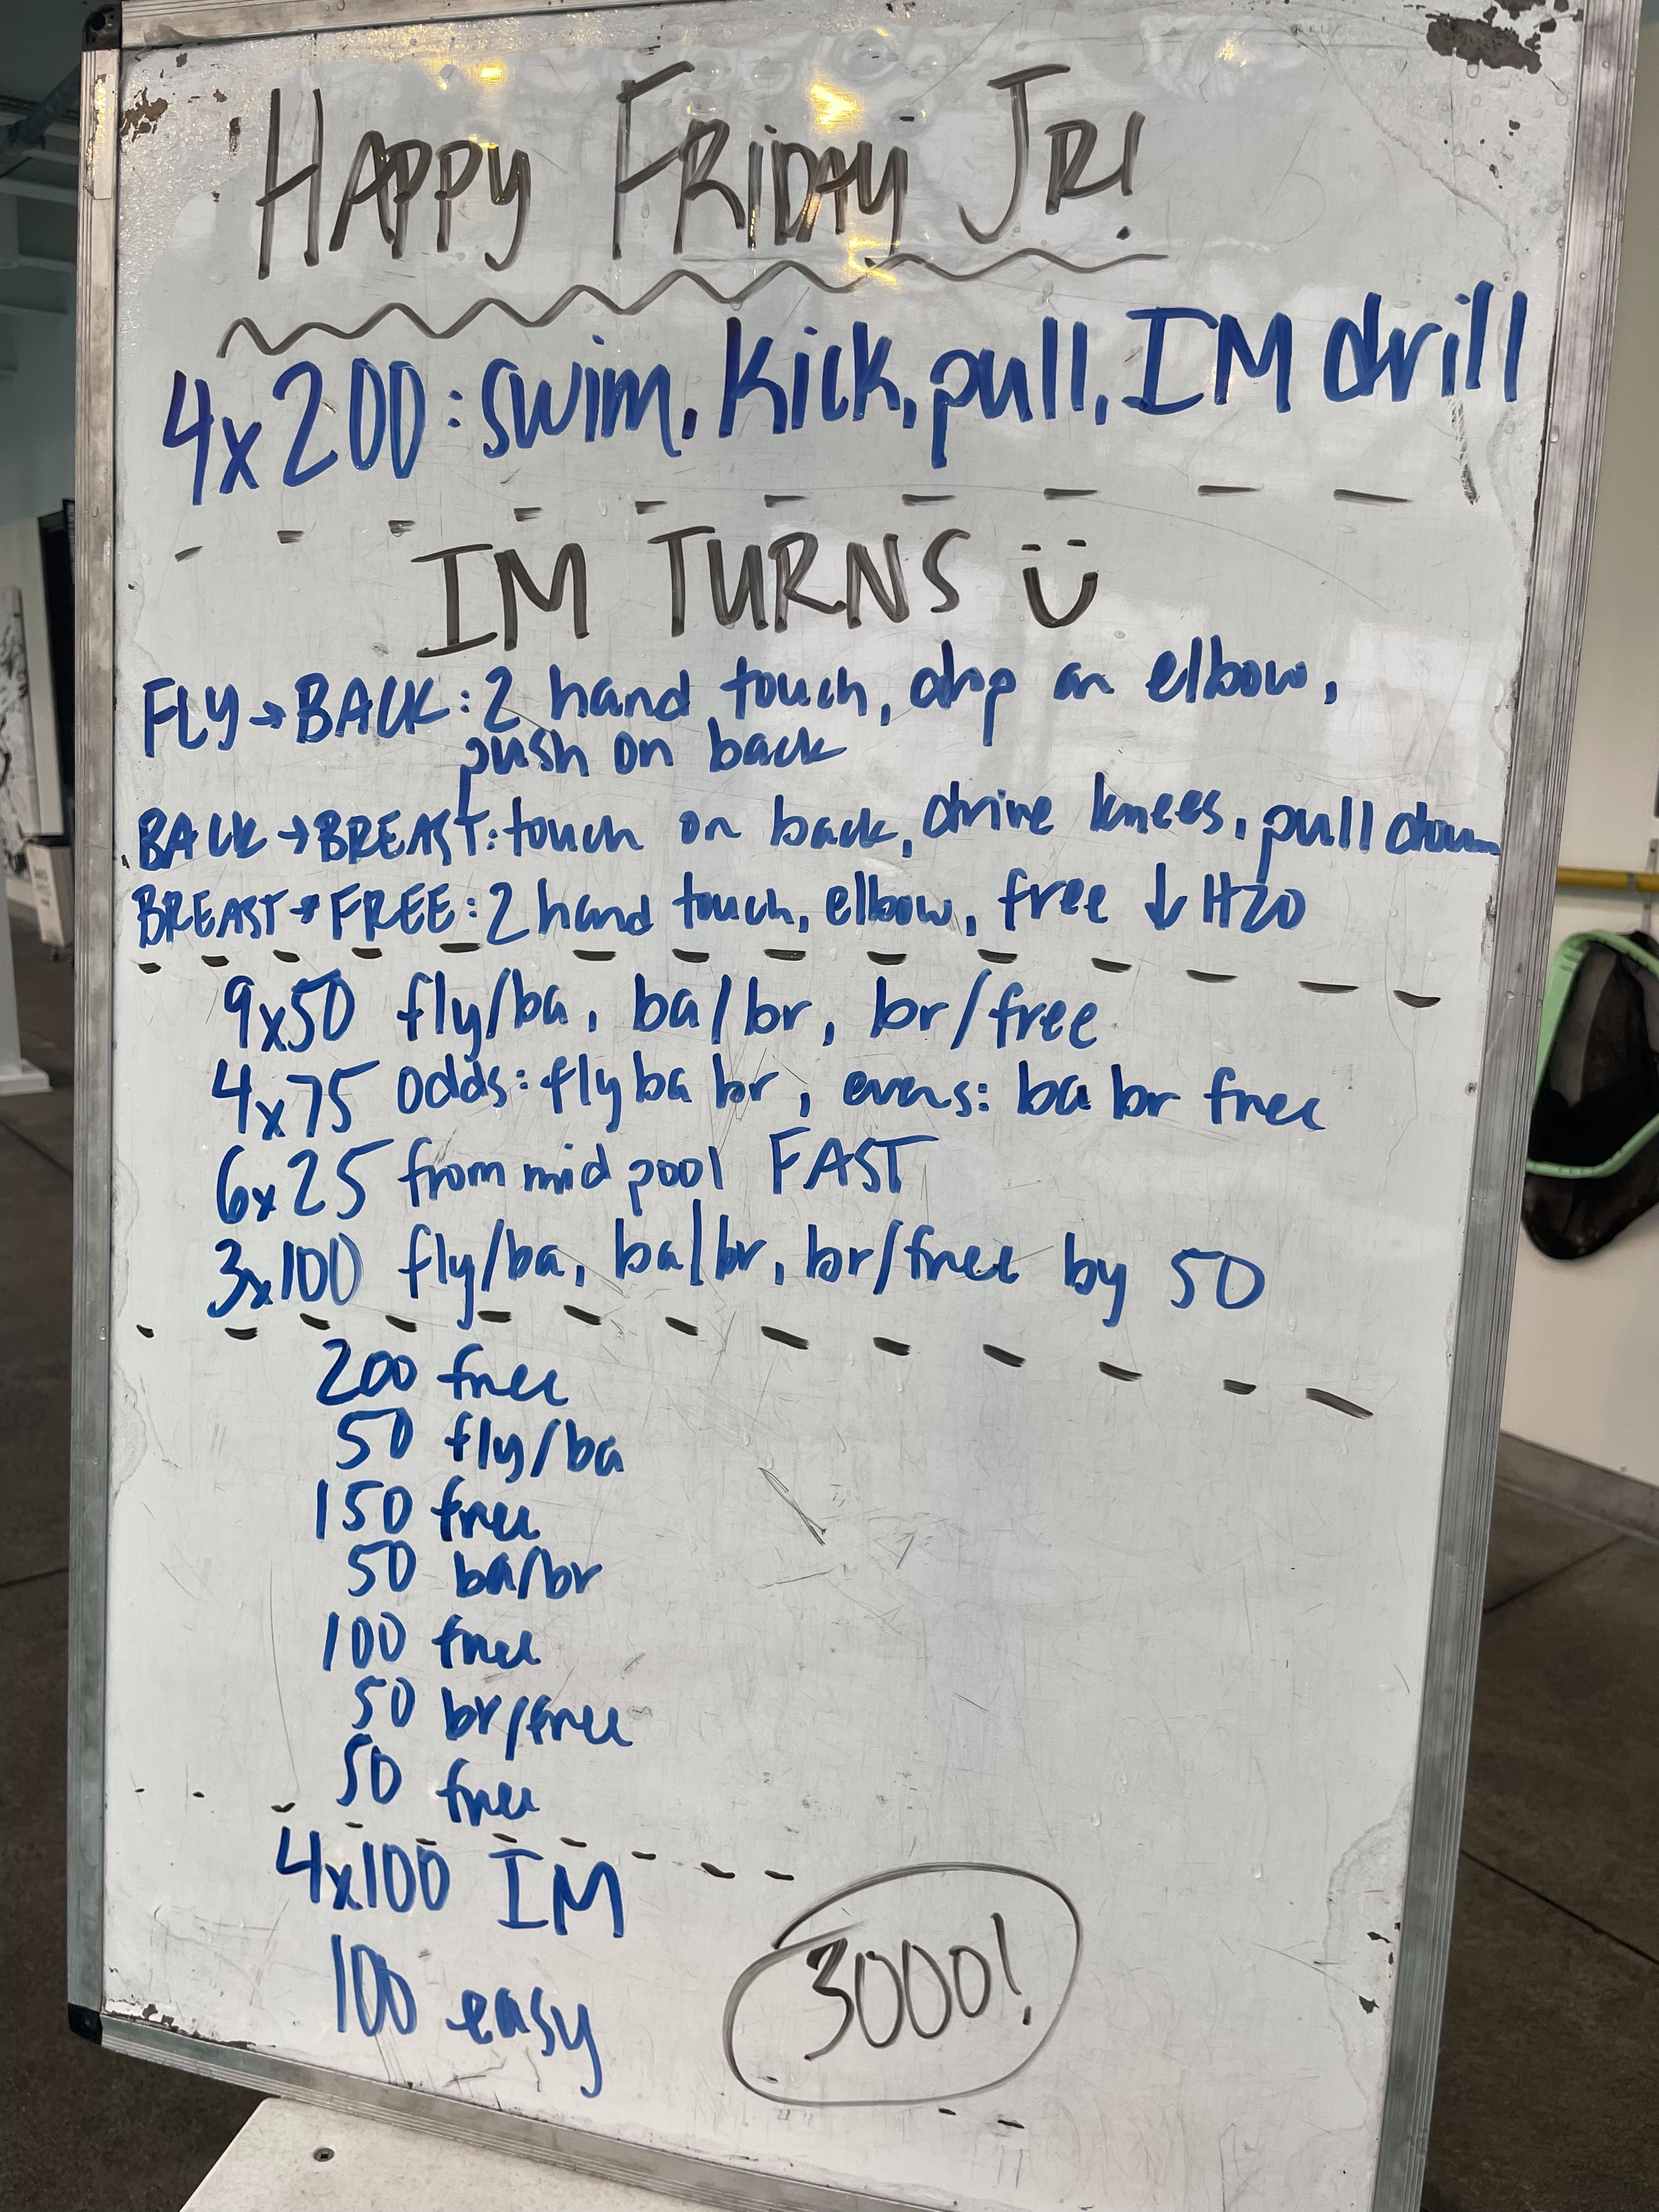 HAPPY FRIDAY JR!
4x200: swim, kick, pull, IM drill
IM TURNS
FLY→BACK: 2 hand touch, drop an elbow,
push on back
BACK→BREAST: touch on back, drive knees, pull down
BREAST→FREE: 2 hand touch, elbow, free ↓ H20
9x50 fly/ba, ba/br, br/free
4x75 odds: fly ba br, evens: ba br free
6x25 from mid pool FAST
3x100 fly/ba, ba/br, br/free by 50
200 free
50 fly/ba
150 free
50 ba/br
100 free
50 br/free
50 free
4x100 IM
100 easy
3000!